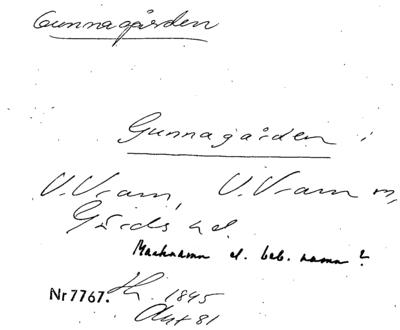 Gunnagården
Gunnagården i
V. Vram, V. Vram sn,
Gärds hd
Marknamn el. beb. namn?
Nr 7767. 1845
81